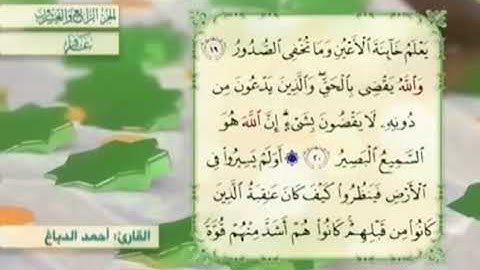 الجزء الرابع والعشرون
غافر
يَعْلَمُ خَآئِنَةَ الْأَعْيُنِ وَمَا تُخْفِي الصُّدُورُ ﴿١٩﴾
وَاللَّهُ يَقْضِي بِالْحَقِّ وَالَّذِينَ يَدْعُونَ مِن
دُونِهِ لَا يَقْضُونَ بِشَيْءٍ إِنَّ اللَّهَ هُوَ
السَّمِيعُ الْبَصِيرُ ﴿٢٠﴾ أَوَلَمْ يَسِيرُوا فِي
الْأَرْضِ فَيَنظُرُوا كَيْفَ كَانَ عَاقِبَةُ الَّذِينَ
كَانُوا مِن قَبْلِهِمْ كَانُوا هُمْ أَشَدَّ مِنْهُمْ قُوَّةً
القارئ: أحمد الدباغ